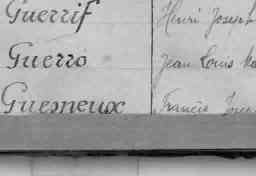 Guerrif Henri Joseph
Guerro Jean Louis
Guesneux Francis